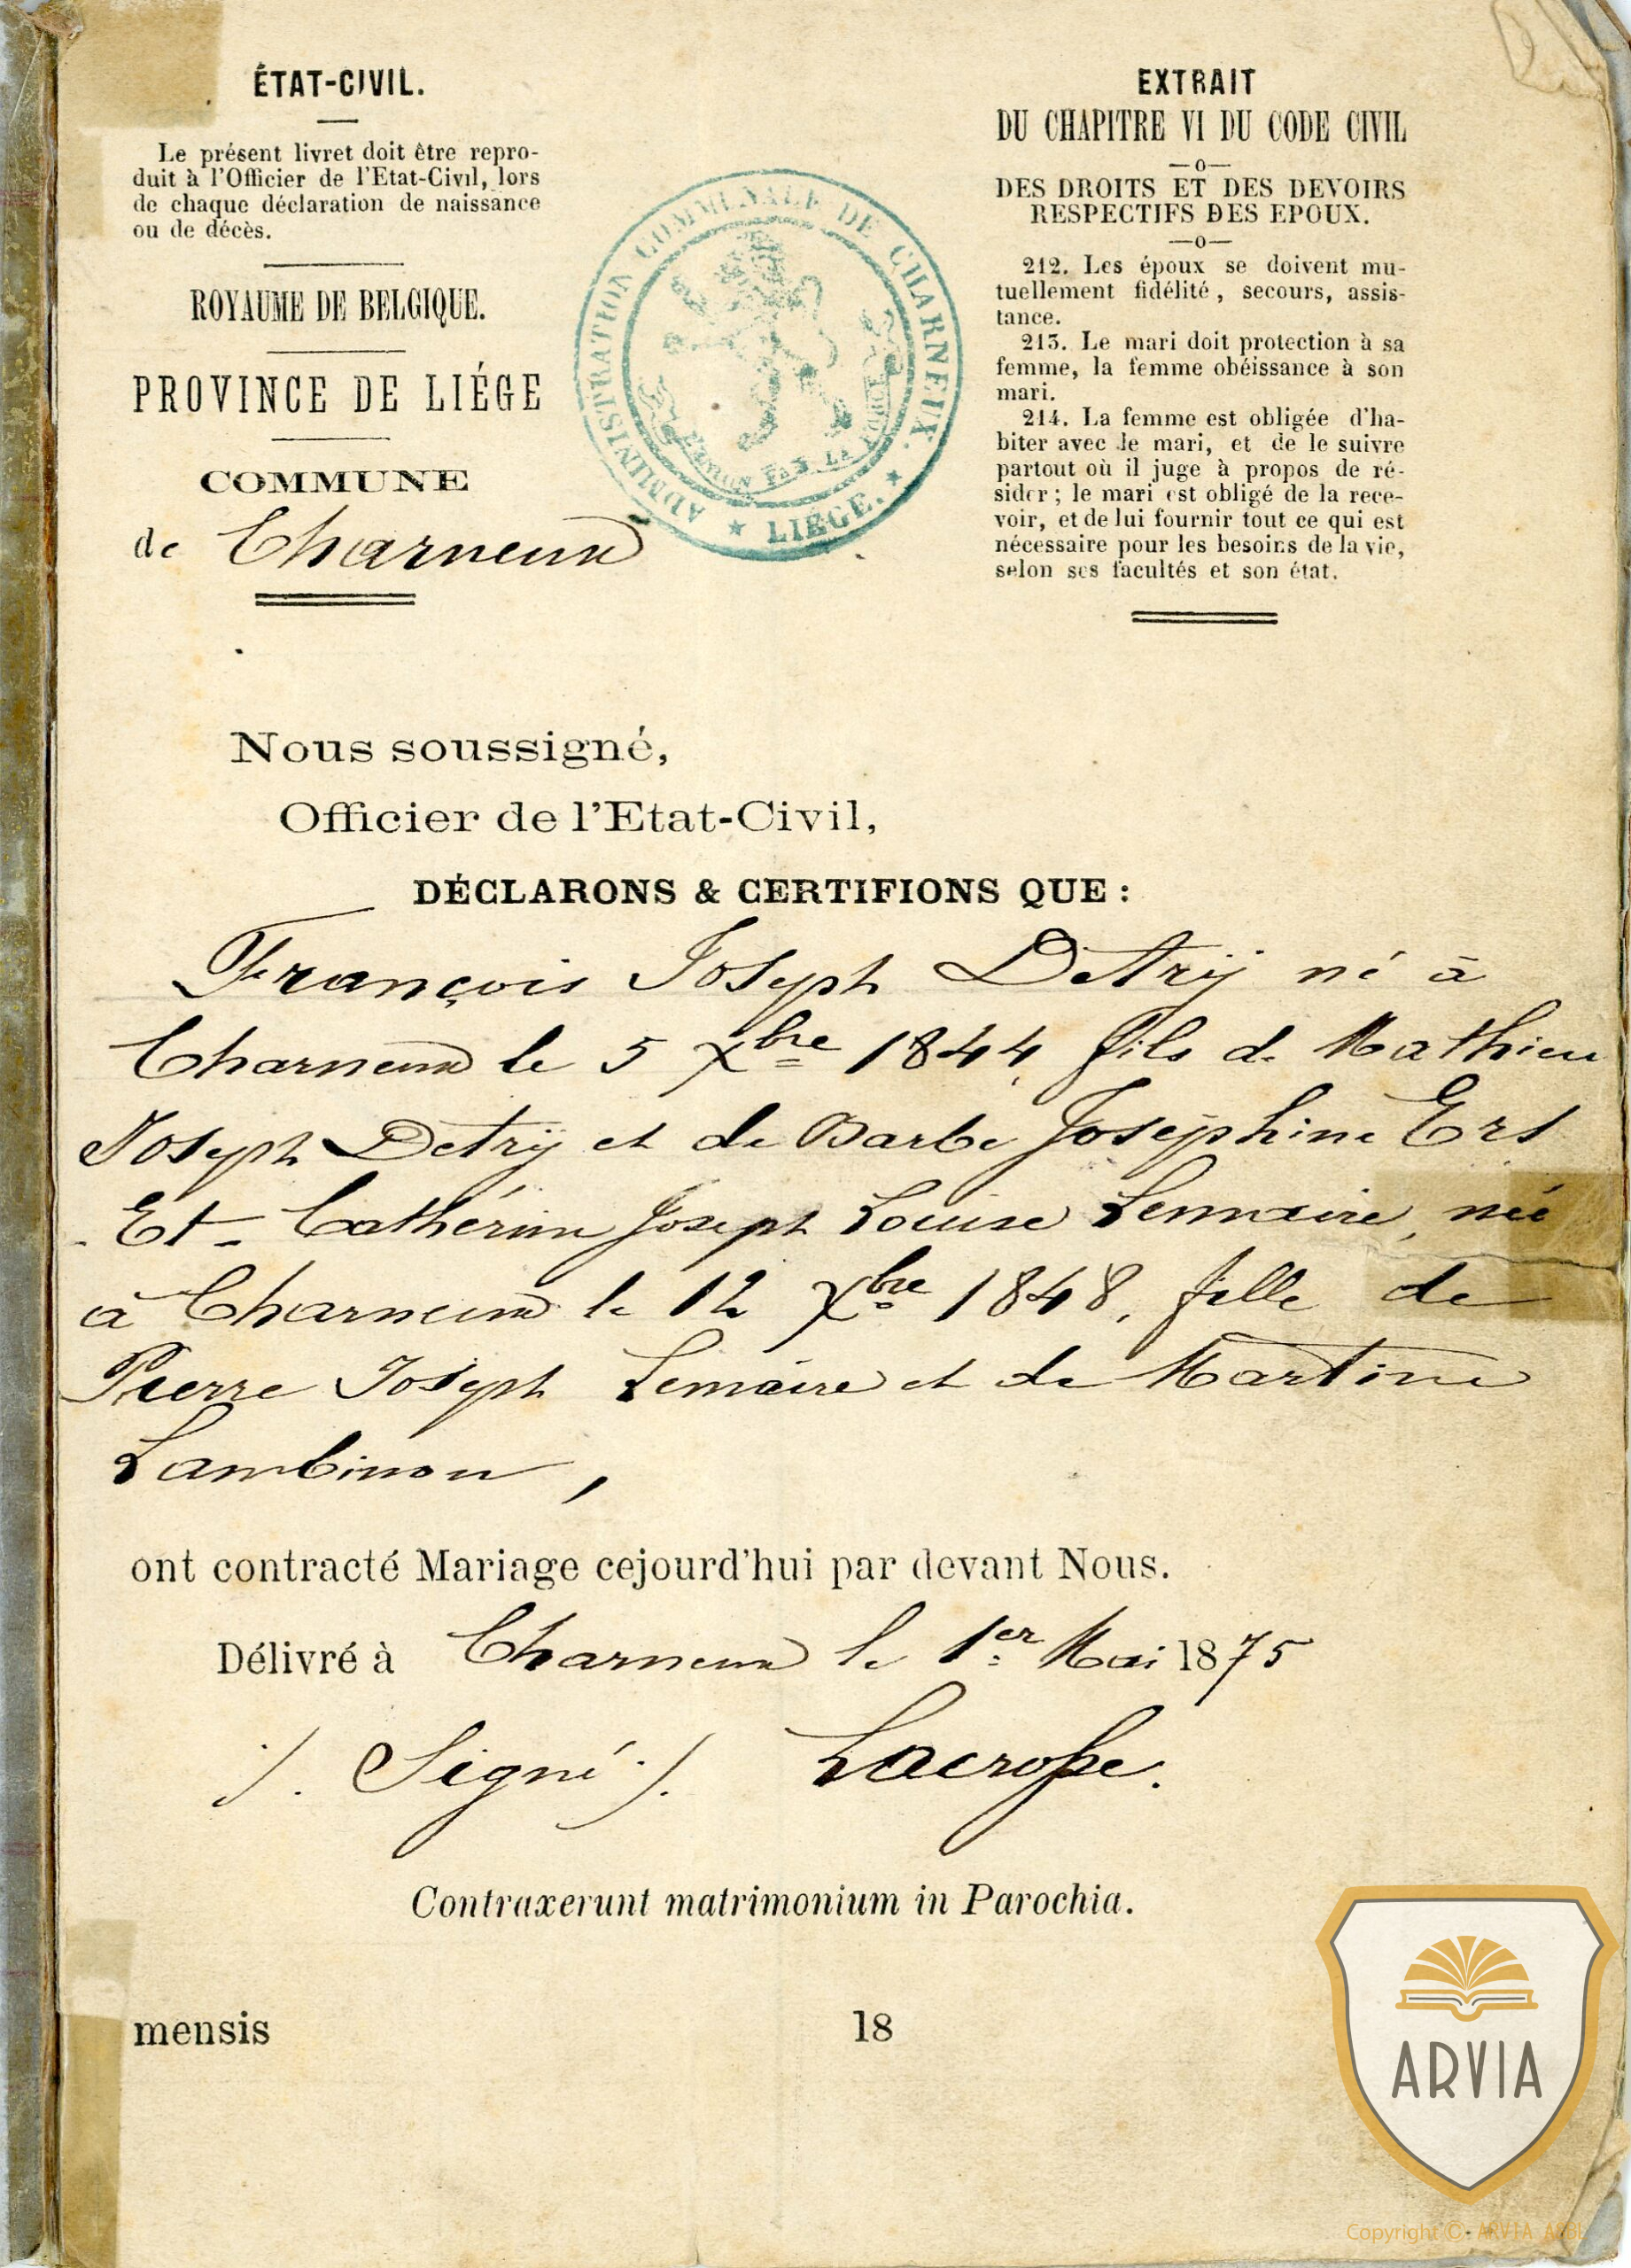 ÉTAT-CIVIL.
Le présent livret doit être repro-
duit à l'Officier de l'Etat-Civil, lors
de chaque déclaration de naissance
ou de décès.
ROYAUME DE BELGIQUE.
PROVINCE DE LIÉGE
COMMUNE
de Charneux
ADMINISTRATION COMMUNALE DE CHARNEUX.
★ LIÉGE. ★
L'UNION FAIT LA FORCE
EXTRAIT
DU CHAPITRE VI DU CODE CIVIL
—o—
DES DROITS ET DES DEVOIRS
RESPECTIFS DES EPOUX.
—o—
212. Les époux se doivent mu-
tuellement fidélité, secours, assis-
tance.
213. Le mari doit protection à sa
femme, la femme obéissance à son
mari.
214. La femme est obligée d'ha-
biter avec le mari, et de le suivre
partout où il juge à propos de ré-
sider ; le mari est obligé de la rece-
voir, et de lui fournir tout ce qui est
nécessaire pour les besoins de la vie,
selon ses facultés et son état.
Nous soussigné,
Officier de l'Etat-Civil,
DÉCLARONS & CERTIFIONS QUE :
François Joseph Detrÿ né à
Charneux le 5 Xbre 1844, fils de Mathieu
Joseph Detrÿ et de Barbe Joséphine Ers
- Et - Cathérine Joseph Louise Lemaire, née
à Charneux le 12 Xbre 1848, fille de
Pierre Joseph Lemaire et de Martine
Lambinon,
ont contracté Mariage cejourd'hui par devant Nous.
Délivré à Charneux le 1er Mai 1875
/. Signé ./. Lacrosse.
Contraxerunt matrimonium in Parochia.
mensis 18
ARVIA
Copyright © ARVIA ASBL